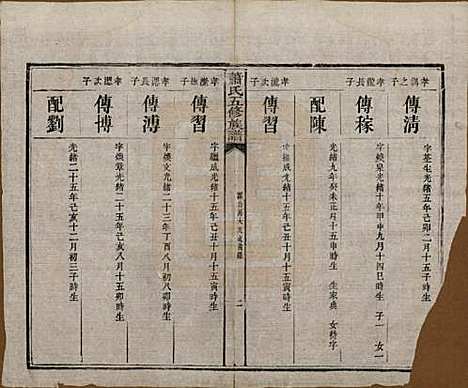 孝鴻之子
傳清
字菱生光緒五年己卯二月十五子時生
孝龍長子
傳稼
字繞泉光緒十年甲申九月十四巳時生 子一 女一
配陳
光緒九年癸未正月十五辰時生 生家典 女務字
孝龍次子
傳習
字繼成光緒十五年己丑十月十五寅時生
蕭氏五修族譜
二
孝嵐撫子
傳習
字繼成光緒十五年己丑十月十五寅時生
孝濃長子
傳溥
字煥文光緒二十三年丁酉八月初八卯時生
孝濃次子
傳博
字煥章光緒二十五年己亥八月十五卯時生
配劉
光緒二十五年己亥十二月初三子時生